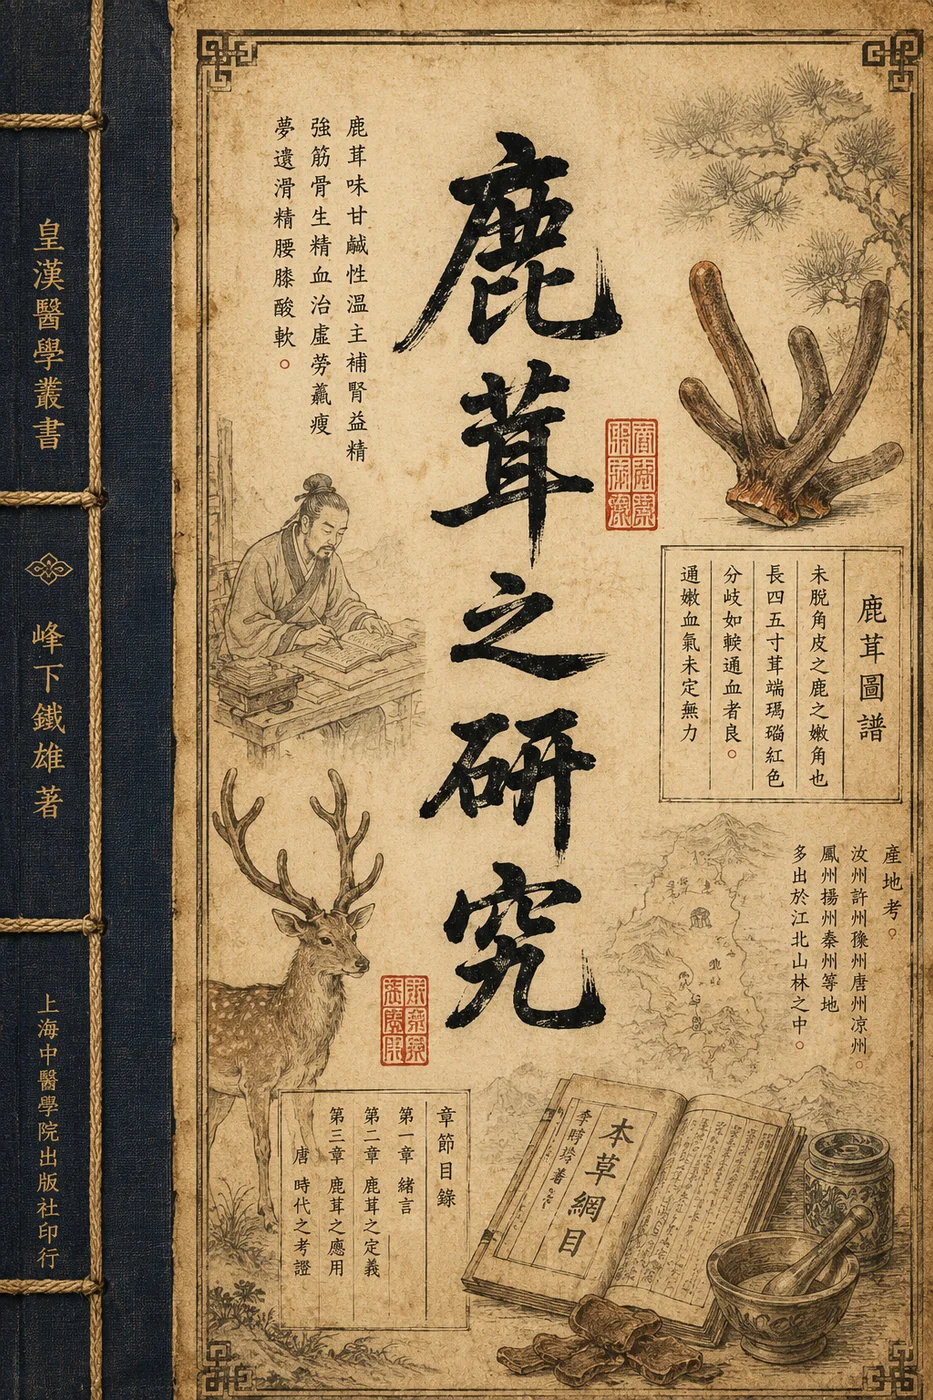 皇漢醫學叢書
峰下鐵雄著
上海中醫學院出版社印行
鹿茸之研究
鹿茸味甘鹹性溫主補腎益精
強筋骨生精血治虛勞羸瘦
夢遺滑精腰膝酸軟。
鹿茸圖譜
未脫角皮之鹿之嫩角也
長四五寸茸端瑪瑙紅色
分歧如
通血者良。
通嫩血氣未定無力
產地考。
汝州許州豫州唐州凉州。
鳳州揚州秦州等地
多出於江北山林之中。
章節目錄
第一章 緒言
第二章 鹿茸之定義
第三章 鹿茸之應用
唐 時代之考證
本草網目
李時
著